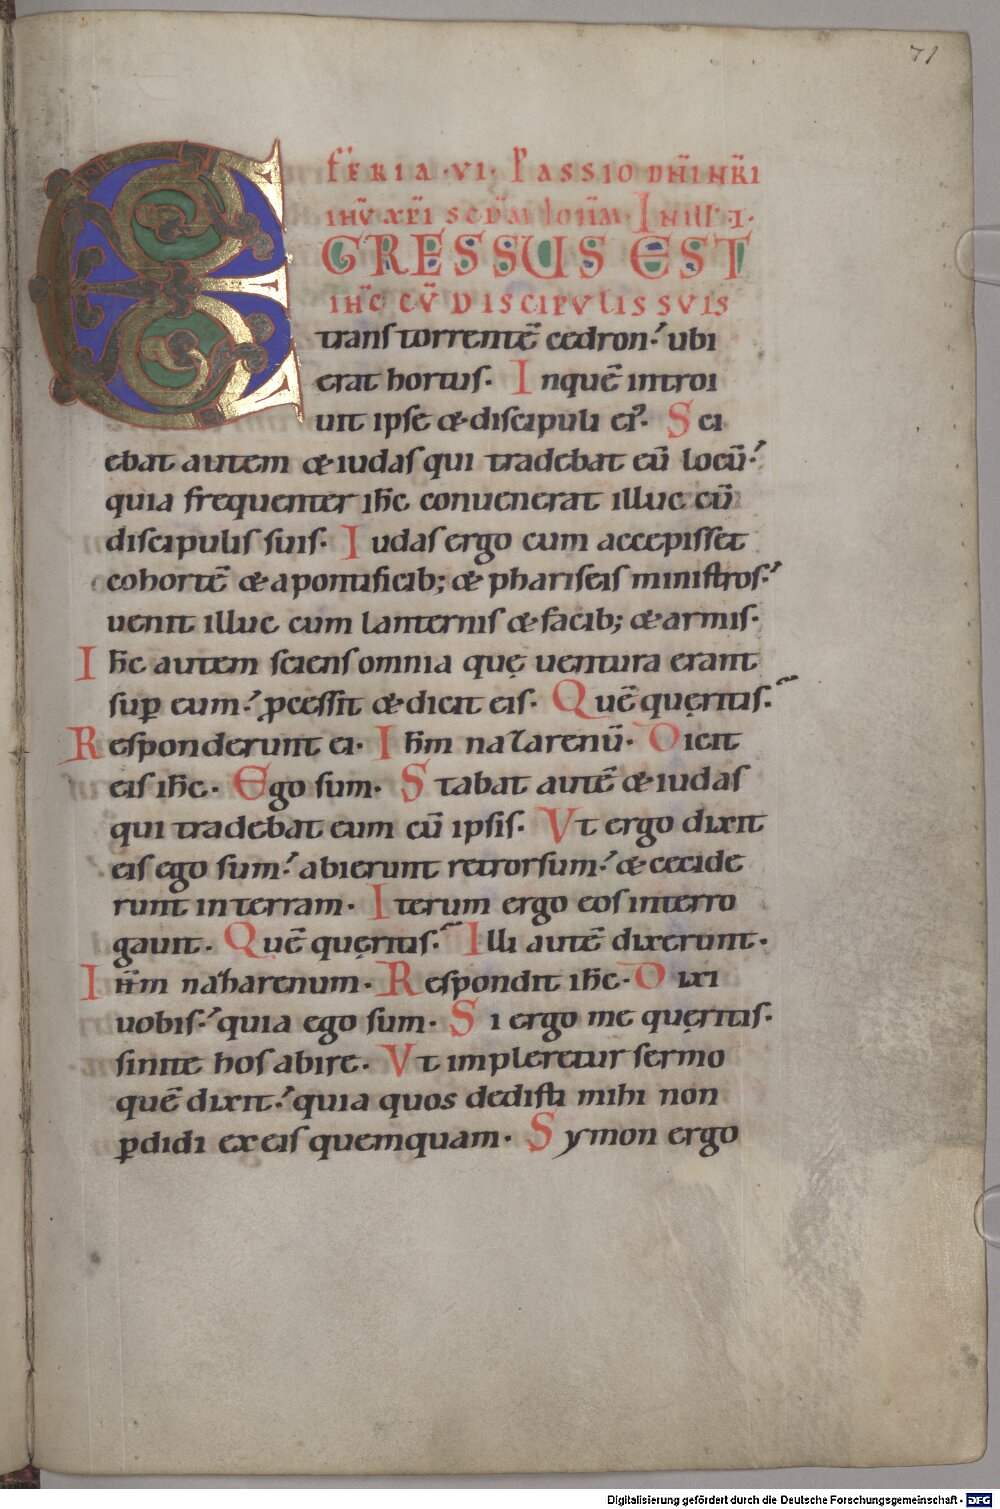 71
FERIA · VI · PASSIO DN̄I NR̄I
IHV̄ XP̄I SCDM̄ IOH̄M · IN ILL̄ T̄·
EGRESSUS EST
IHC̄ CV̄ DISCIPVLIS SVIS
trans torrentē cedron. ubi
erat hortus. In quē introi
uit ipse & discipuli ei᾿. Sci
ebat autem & iudas qui tradebat eū locū.
quia frequenter ih̄c conuenerat illuc cū
discipulis suis. Iudas ergo cum accepisset
cohortē & a pontificib; & phariseis ministros.
uenit illuc cum lanternis & facib; & armis.
Ih̄c autem sciens omnia quę uentura erant
sup̱ eum. ꝓcessit & dicit eis. Quē quęritis.
Responderunt ei. Ih̄m nazarenū. Dicit
eis ih̄c. Ego sum. Stabat autē & iudas
qui tradebat eum cū ipsis. Vt ergo dixit
eis ego sum. abierunt retrorsum. & cecide
runt in terram. Iterum ergo eos interro
gauit. Quē quęritis. Illi autē dixerunt.
Ih̄m nazarenum. Respondit ih̄c. Dixi
uobis. quia ego sum. Si ergo me quęritis.
sinite hos abire. Vt impleretur sermo
quē dixit. quia quos dedisti mihi non
ꝑdidi ex eis quemquam. Symon ergo
Digitalisierung gefördert durch die Deutsche Forschungsgemeinschaft - DFG